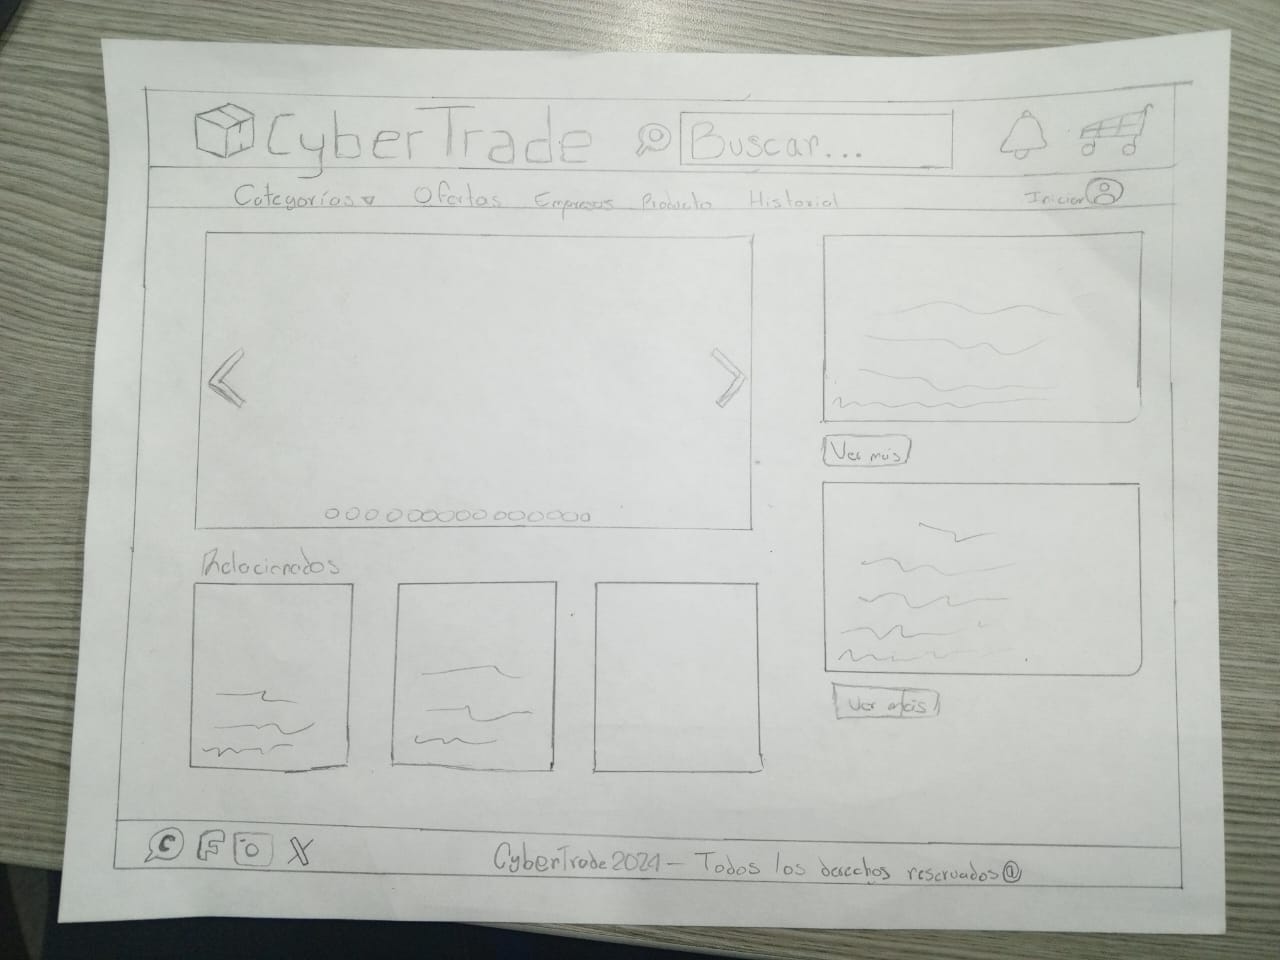 CyberTrade Buscar...
Categorías Ofertas Empresas Producto Historial Iniciar
Ver más
Relacionados
Ver más
C F X CyberTrade 2024 - Todos los derechos reservados @